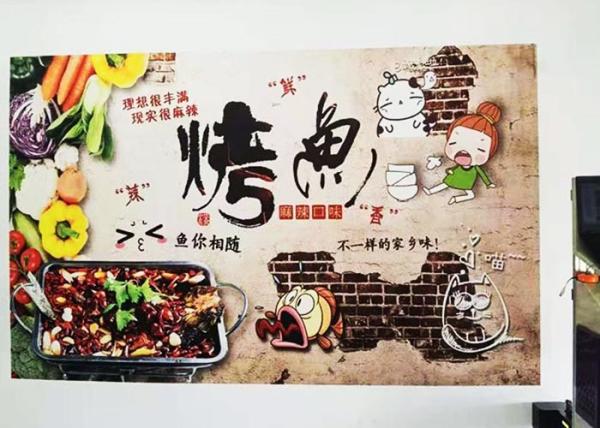 理想很丰满
现实很麻辣
"鲜"
烤魚
"辣"
麻辣口味
"香"
鱼你相随
不一样的家乡味!
小喵